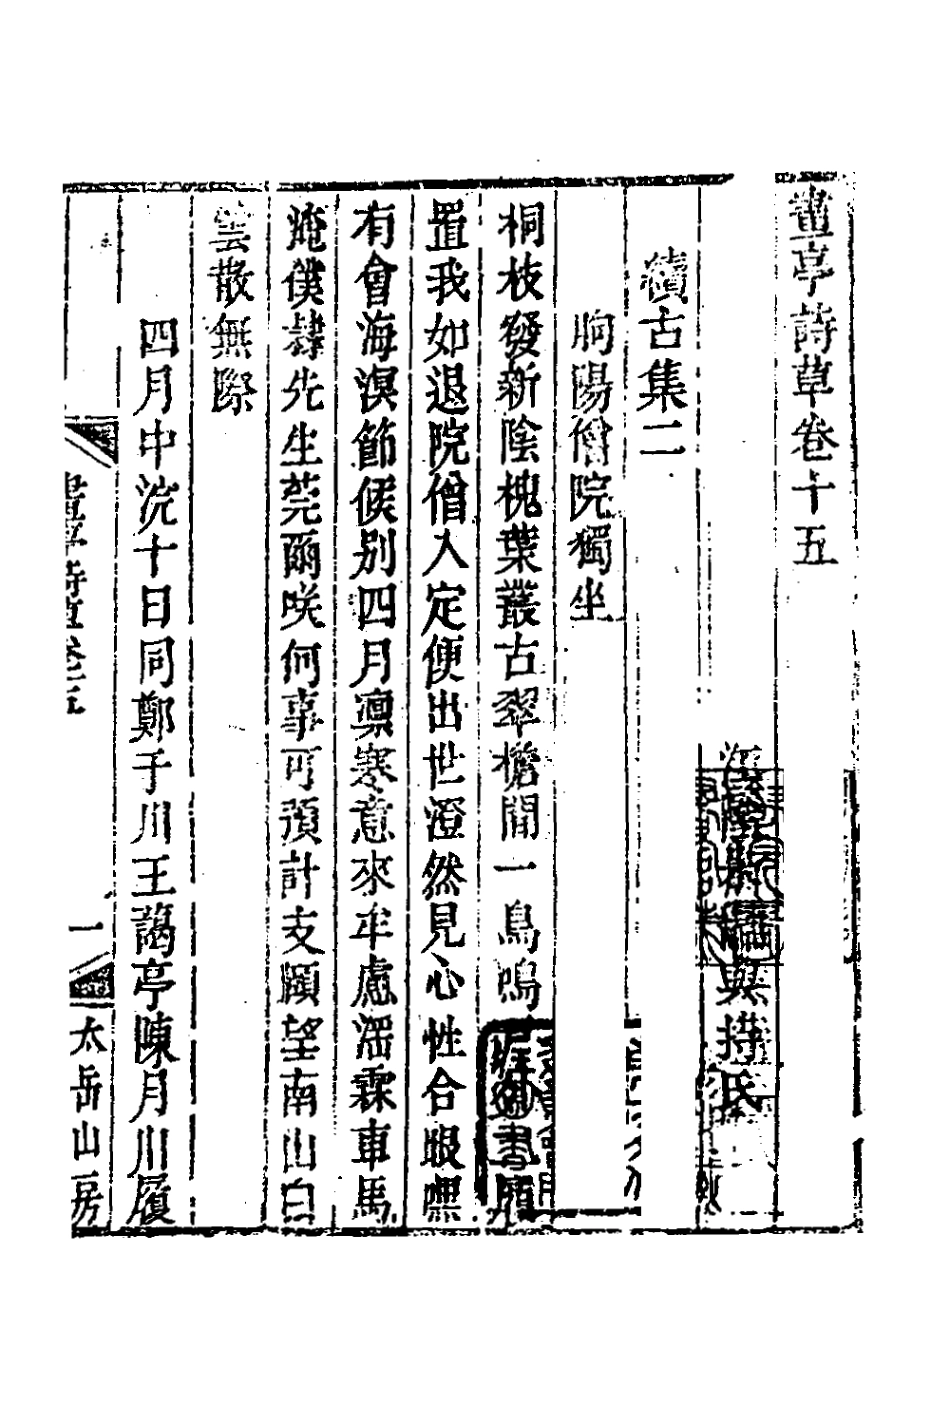 畫亭詩草卷十五
江陰
與持氏
續古集二
朐陽僧院獨坐
桐枝發新陰槐葉叢古翠檐間一鳥鳴
置我如退院僧入定便出世澄然見心性合眼嘿
有會海溟節候別四月凜寒意來牟慮濡霖車馬
淹僕肄先生莞爾咲何事可預計支頤望南山白
雲散無際
四月中浣十日同鄭于川王藹亭陳月川履
畫亭詩草卷十五
一
太岳山房